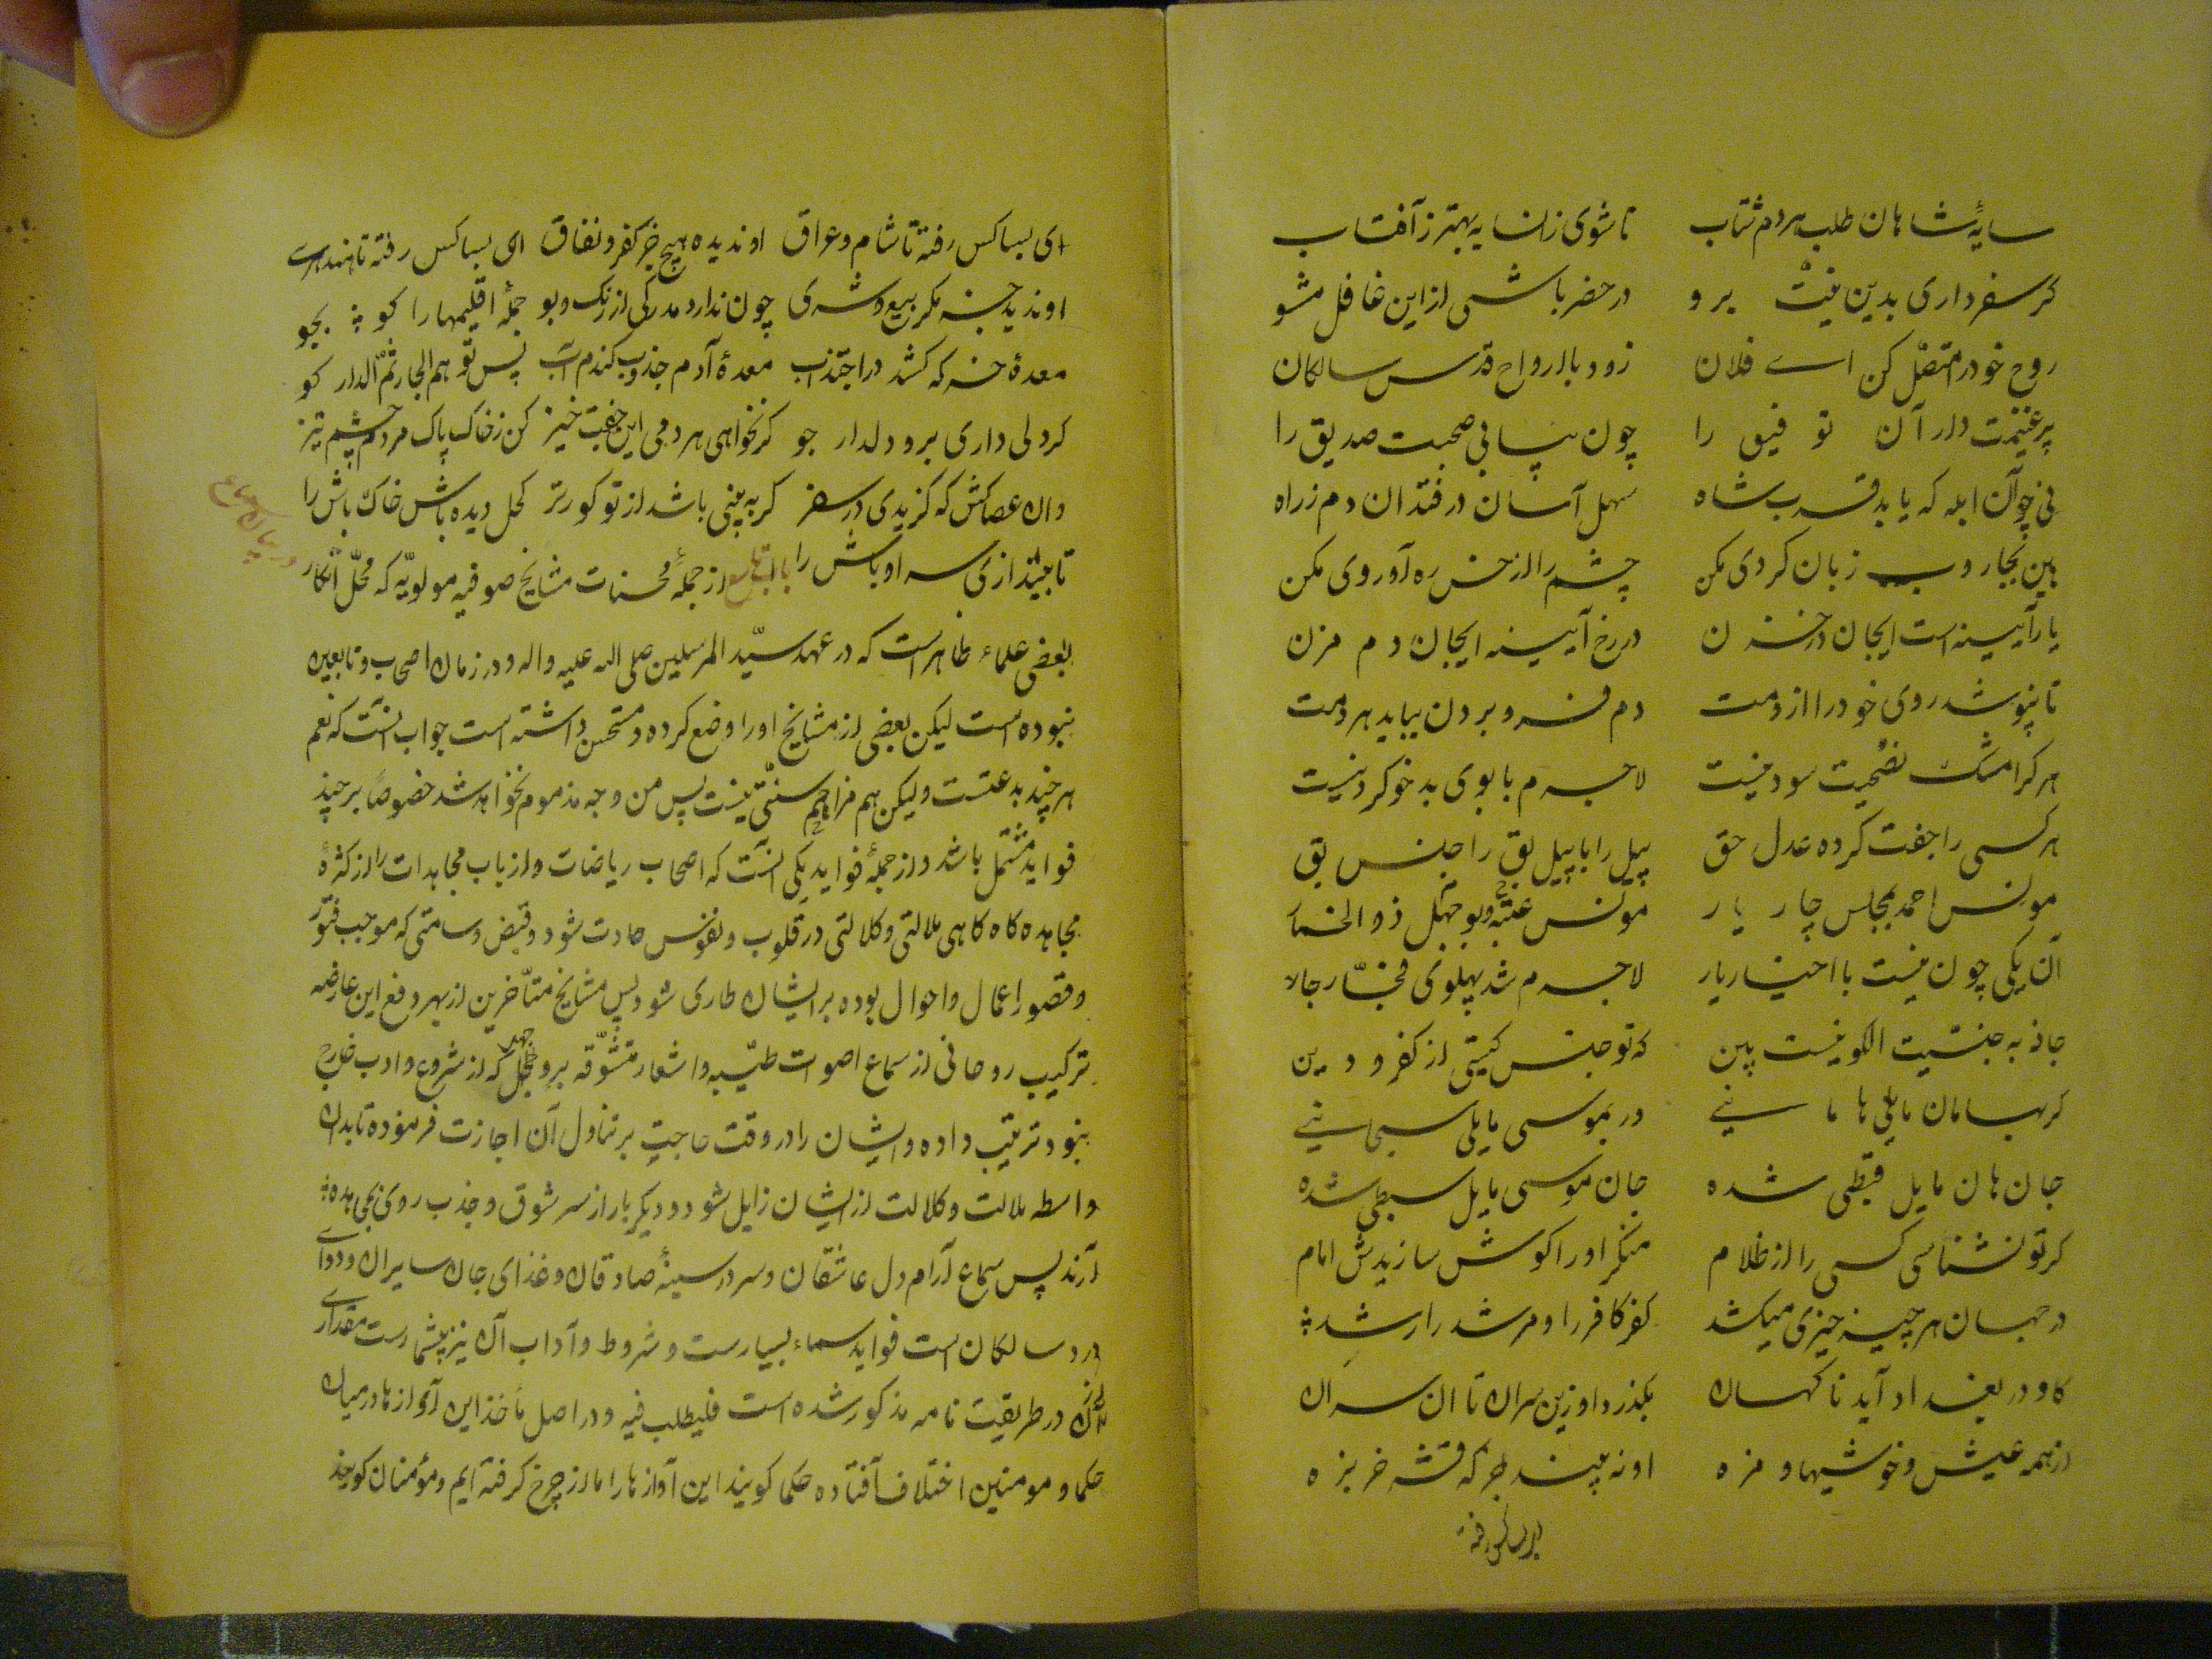 سایهٔ شاهان طلب هر دم شتاب تا شوی زان سایه بهتر ز آفتاب
کر سفر داری بدین نیت برو در حضر باشی از این غافل مشو
روح خود را متصل کن ای فلان زود با ارواح قدس سالکان
پر غنیمت دار آن توفیق را چون بیابی صحبت صدیق را
نی چو آن ابله که یابد قرب شاه سهل آسان در فتد آن دم ز راه
هین بجاروب زبان کردی مکن چشم را از خس ره آوردی مکن
یار آیینه است ای جان در حزن در رخ آیینه ای جان دم مزن
تا نپوشد روی خود را از دمت دم فرو بردن بباید هر دمت
هر کرا مشک نصیحت سود نیست لاجرم با بوی بد خو کردنیست
هر کسی را جفت کرده عدل حق پیل را با پیل بق را جنس بق
مونس احمد بمجلس چار یار مونس عتبه و بوجهل ذو الخمار
آن یکی چون نیست با اخیار یار لاجرم شد پهلوی فجّار جار
جاذبه جنسیت اکنون ببین که تو جنس کیستی از کفر و دین
کر بهامان مایلی هامانی ور بموسی مایلی سبحانی
جان هامان مایل قبطی شده جان موسی مایل سبطی شده
کر تو نشناسی کسی را از ظلام بنکر او را کوش سازیدش امام
در جهان هر چیز چیزی میکشد کفر کافر را و مرشد را رشد
کاو در بغداد آید ناکهان بکذرد او زین سران تا آن سران
از همه عیش و خوشیها و مزه او نه بیند جز که قشر خربزه
ای بسا کس رفته
ای بسا کس رفته تا شام و عراق او ندیده هیچ جز کفر و نفاق ای بسا کس رفته تا هند و هری
او ندید جز مکر بیع و شری چون ندارد مدرکی از رنک و بو جملهٔ اقلیمها را کو بجو
معدهٔ خر که کشد در اجتذاب معدهٔ آدم جذوب کندم آب پس تو هم الجار ثمّ الدار کو
کر دلی داری برو دلدار جو کر نخواهی هر دمی این خفت خیز کن ز خاک پاک مردم چشم تیز
وان عصاکش که کزیدی در سفر کر به بینی باشد از تو کورتر کحل دیده باش خاک باش را
تا بیندازی سر اوباش را از جملهٔ محسنات مشایخ صوفیه مولویّه که محلّ انکار
در بیان سماع
بعضی علماء ظاهر است که در عهد سیّد المرسلین صلی الله علیه واله و در زمان اصحاب و تابعین
نبوده است لیکن بعضی از مشایخ او را وضع کرده و مستحسن داشته است جواب آنست که نعم
هر چند بدعتست ولیکن هم مزاحم سنّتی نیست پس من وجه مذموم نخواهد شد خصوصاً بر چند
فواید مشتمل باشد و از جملهٔ فواید یکی آنست که اصحاب ریاضات و ارباب مجاهدات را از کثرهٔ
مجاهده کاه کاهی ملالتی و کلالتی در قلوب و نفوس حادث شود و قبض و سامتی که موجب فتور
و قصور اعمال و احوال بوده بر ایشان طاری شود پس مشایخ متأخرین از بهر دفع این عارضه
ترکیب روحانی از سماع اصوات طیّبه و اشعار مشوّقه بر وجهی که از شروع و ادب خارج
نبود ترتیب داده و ایشان را در وقت حاجت بر تناول آن اجازت فرموده تا بدان
واسطه ملالت و کلالت از ایشان زایل شود و دیکر بار از سر شوق و جذب روی بمجاهده
آرند پس سماع آرام دل عاشقان و سرور سینهٔ صادقان و غذای جان سایران و دوای
درد سالکان است فواید سماع بسیارست و شروط و آداب آن نیز بیشمارست مقداری
از آن در طریقیت نامه مذکور شده است فلیطلب فیه و در اصل مأخذ این آوازها در میان
حکما و مومنین اختلاف افتاده حکما کویند این آوازها را ما از چرخ کرفته ایم و مؤمنان کویند